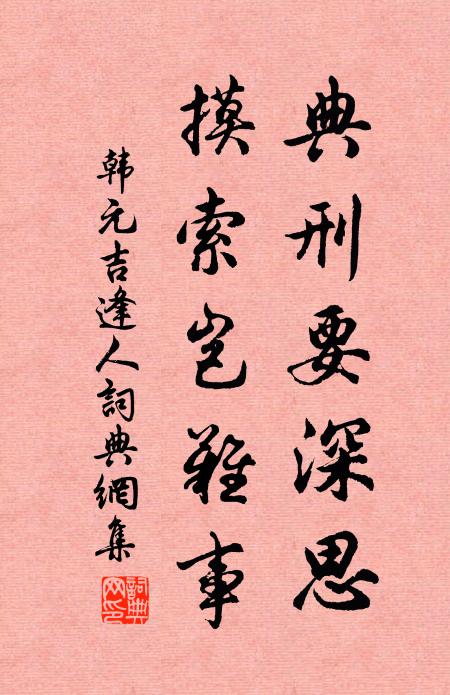 典刑要深思
摸索岂難事
韩元吉逢人詞典網集
詞典
网印